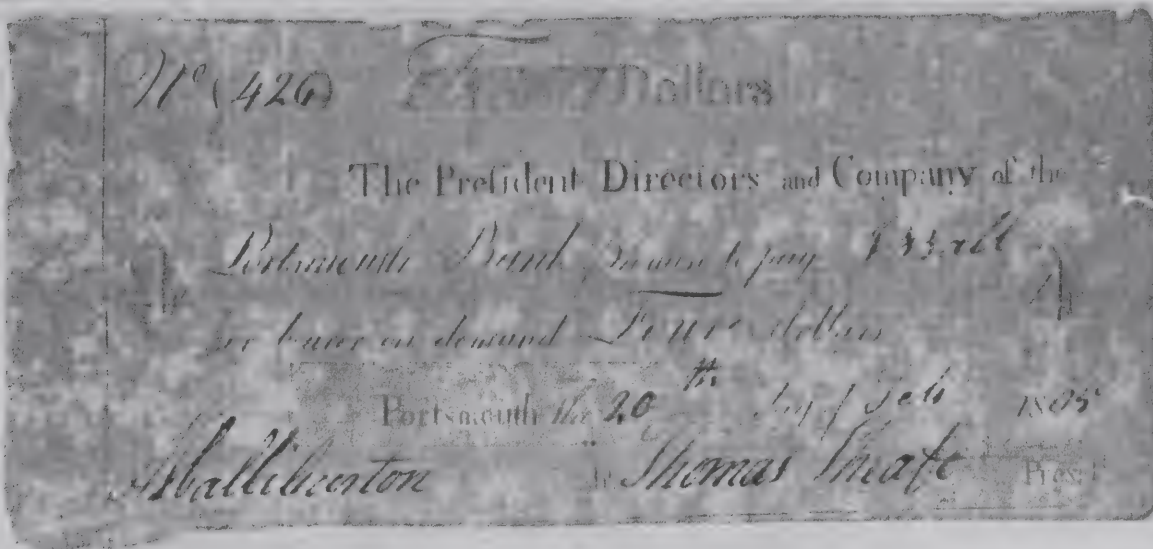 No (426) Dollars
The Preſident Directors and Company of the
4 Portsmouth Bank Promise to pay 4
or bearer on demand Four dollars
Portsmouth the 20th day of Feb 1805
Thomas Sheafe Pres.t